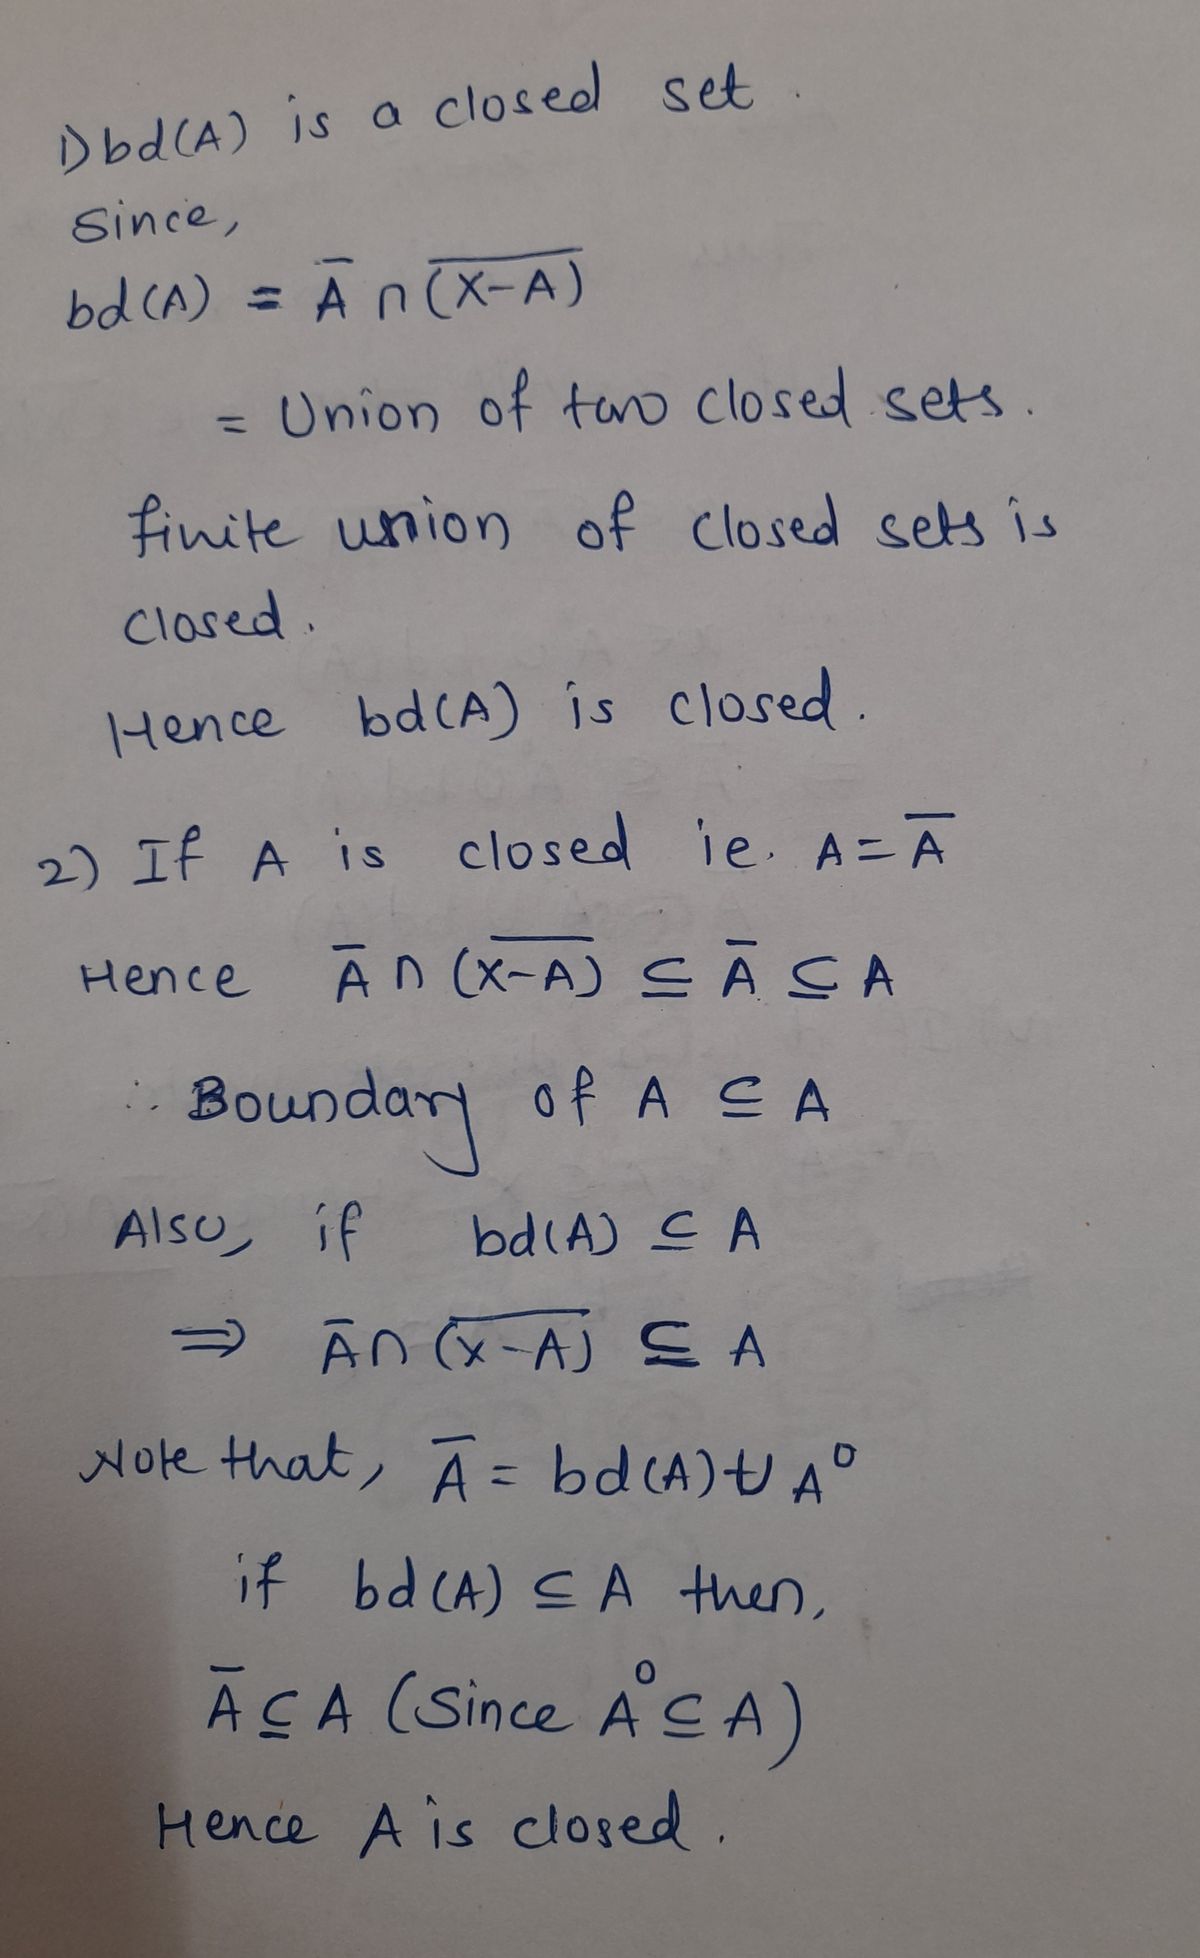 1) bd(A) is a closed set.
Since,
bd(A) = Ā ∩ \overline{(X-A)}
= Union of two closed sets.
finite union of closed sets is
closed.
Hence bd(A) is closed.
2) If A is closed ie. A = Ā
Hence Ā ∩ \overline{(X-A)} ⊆ Ā ⊆ A
∴ Boundary of A ⊆ A
Also, if bd(A) ⊆ A
⇒ Ā ∩ \overline{(X-A)} ⊆ A
Note that, Ā = bd(A) ∪ A°
if bd(A) ⊆ A then,
Ā ⊆ A (Since A° ⊆ A)
Hence A is closed.